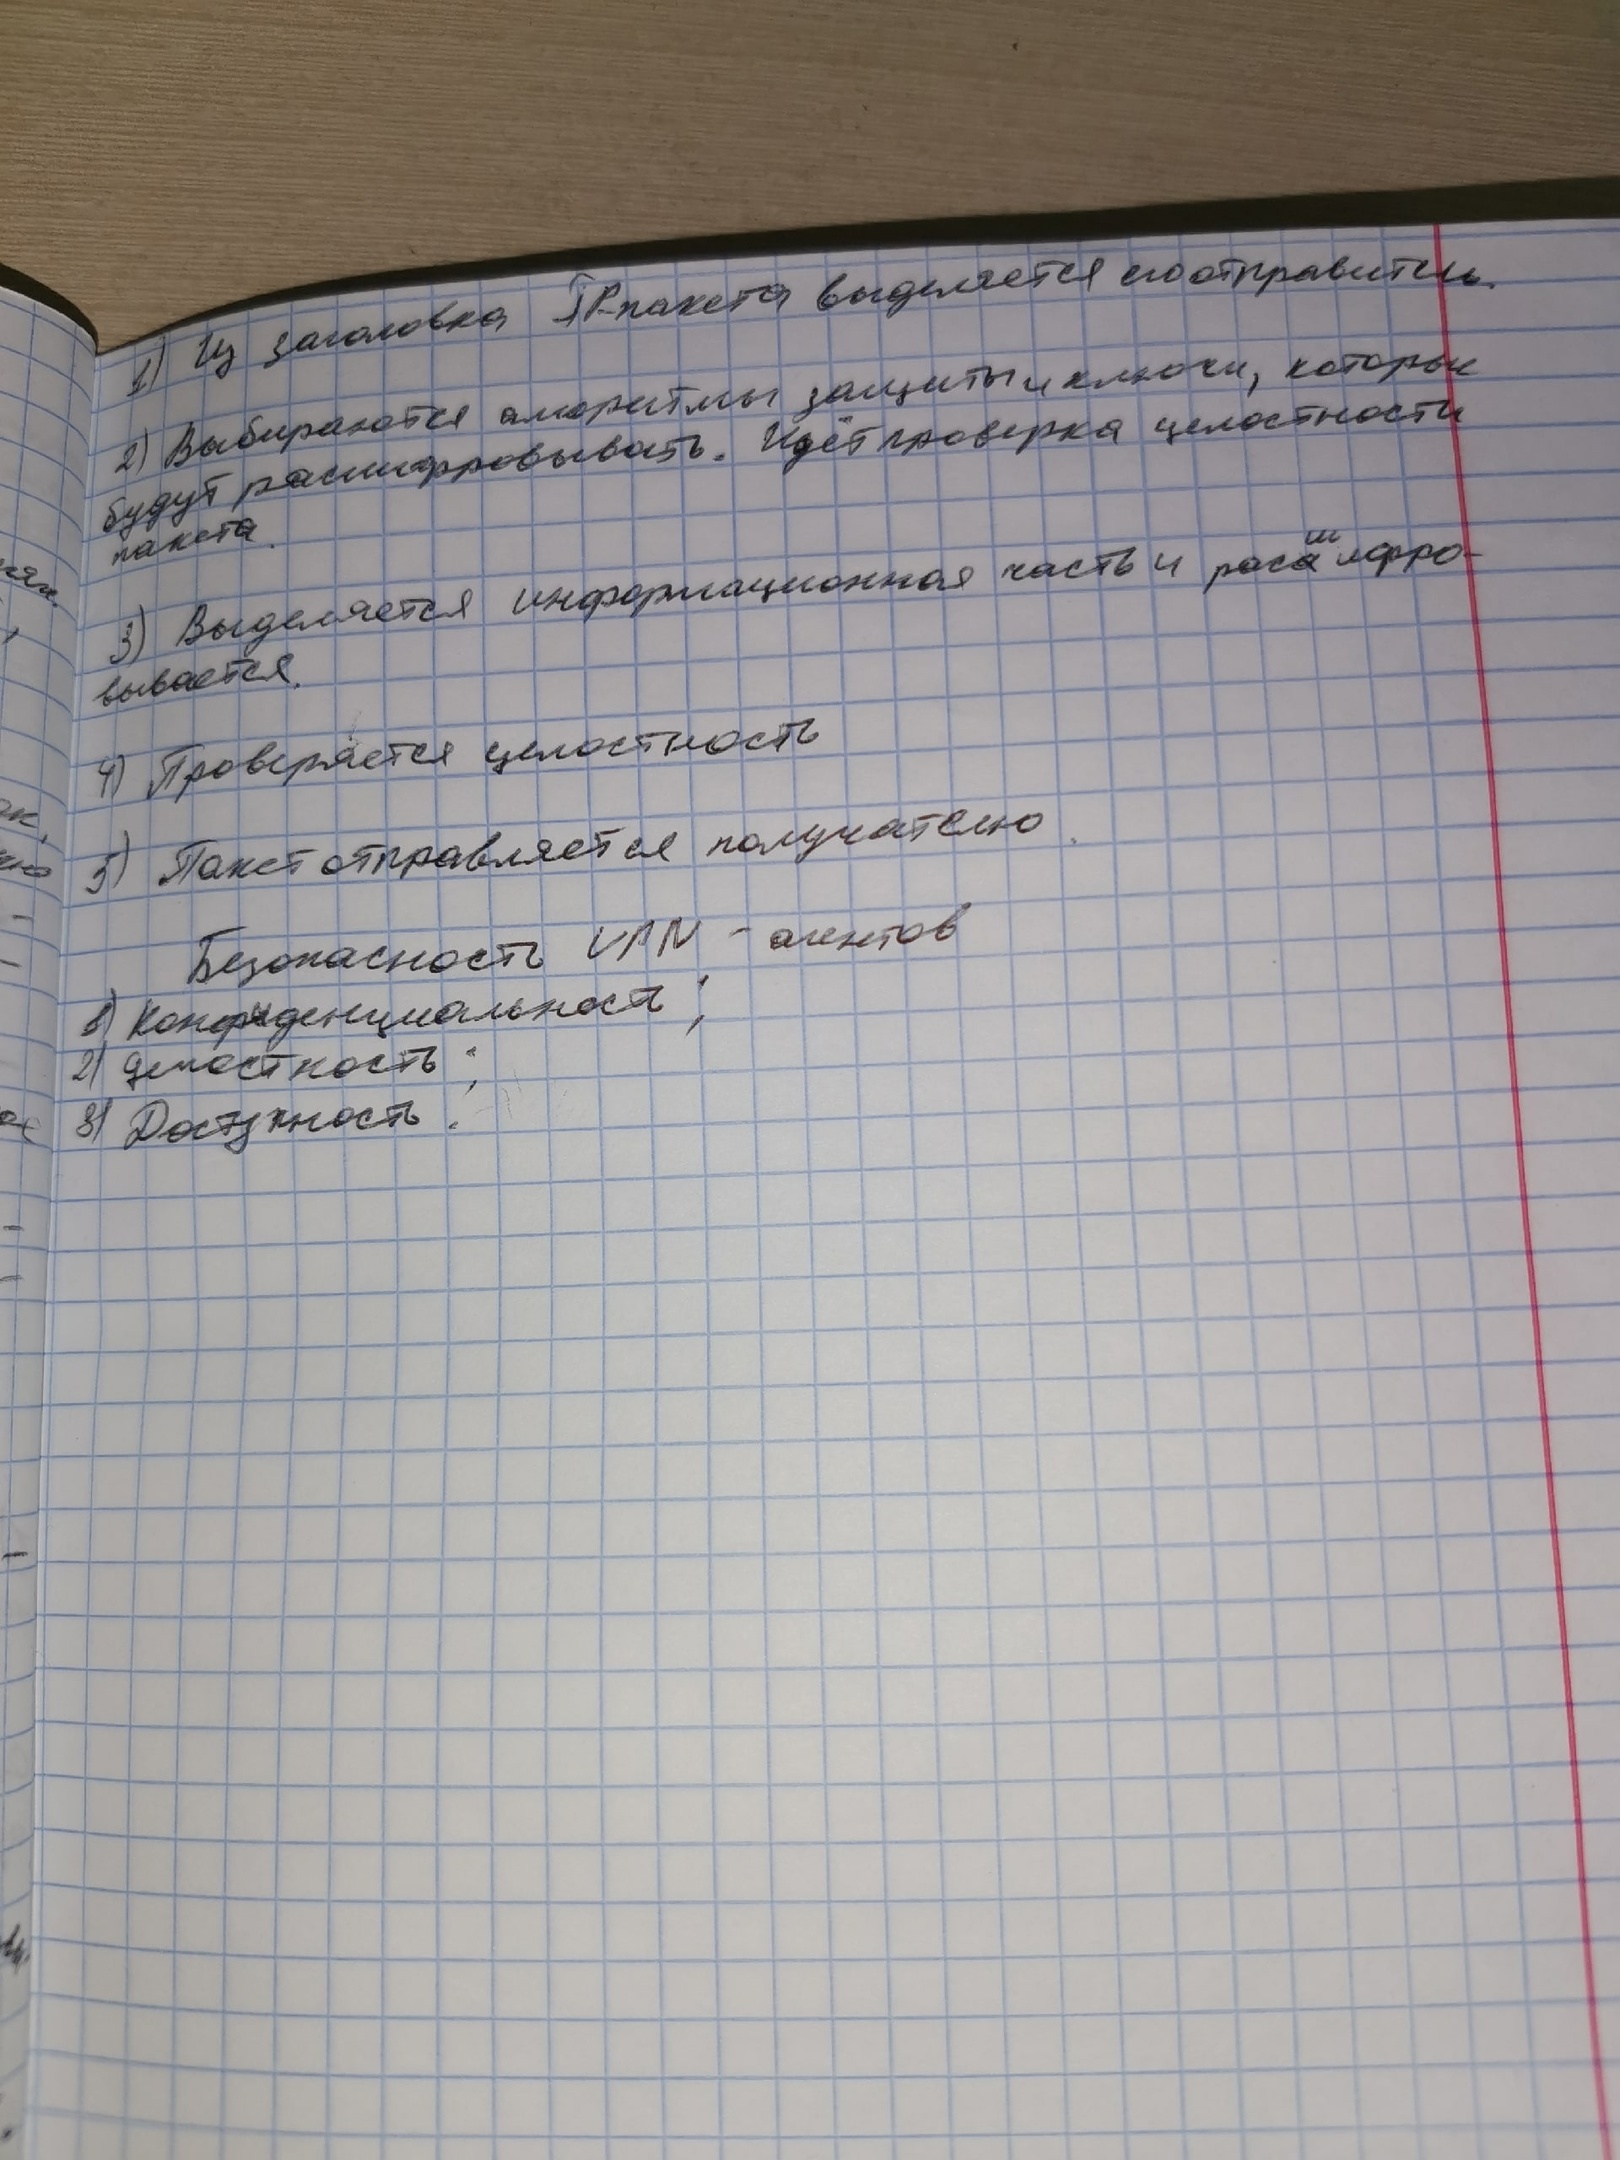 1) Из заголовка IP-пакета выделяется его отправитель.
2) Выбираются алгоритмы защиты и ключи, которые
будут расшифровывать. Идёт проверка целостности
пакета.
3) Выделяется информационная часть и расшифро-
вывается.
4) Проверяется целостность
5) Пакет отправляется получателю.
Безопасность VPN - агентов
1) Конфиденциальность;
2) Целостность;
3) Доступность.